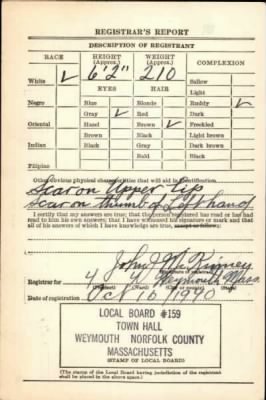 REGISTRAR'S REPORT
DESCRIPTION OF REGISTRANT
RACE HEIGHT (Approx.) WEIGHT (Approx.) COMPLEXION
White ✓ 6'2" 210 Sallow
EYES HAIR Light
Negro Blue Blonde Ruddy ✓
Gray ✓ Red Dark
Oriental Hazel Brown ✓ Freckled
Brown Black Light brown
Indian Black Gray Dark brown
Bald Black
Filipino
Other obvious physical characteristics that will aid in identification
Scar on Upper Lip
Scar on thumb of Left hand
I certify that my answers are true; that the person registered has read or has had
read to him his own answers; that I have witnessed his signature or mark and that
all of his answers of which I have knowledge are true, except as follows:
John J. M. Kinney
Registrar for 4 Weymouth Mass.
Date of registration Oct 16 1940
LOCAL BOARD #159
TOWN HALL
WEYMOUTH NORFOLK COUNTY
MASSACHUSETTS
(STAMP OF LOCAL BOARD)
(The stamp of the Local Board having jurisdiction of the registrant
shall be placed in the above space.)